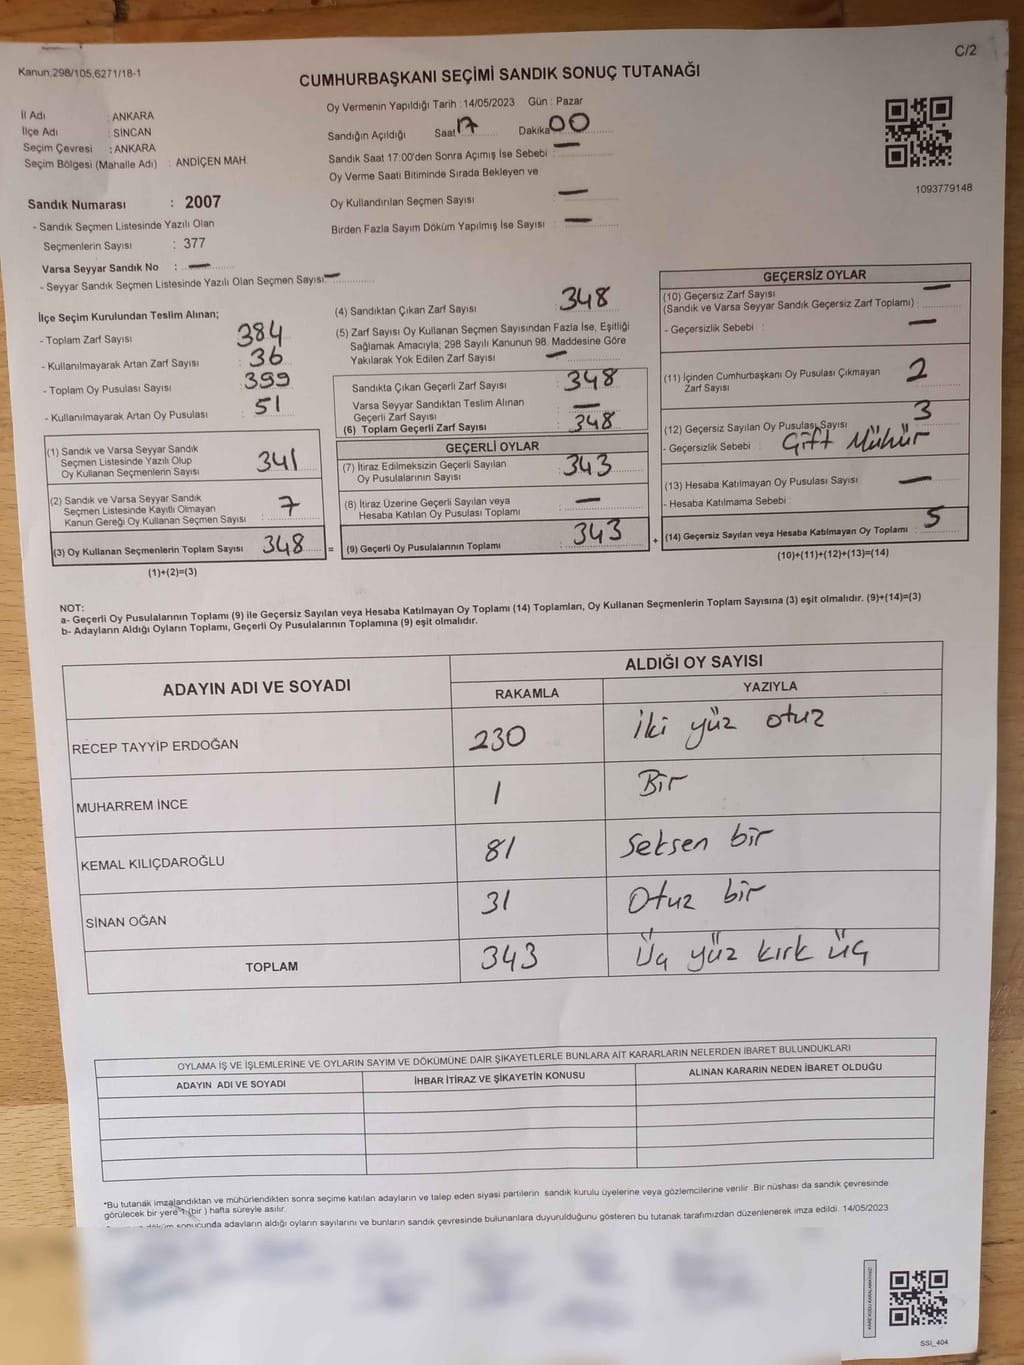 C/2
Kanun:298/105,6271/18-1
CUMHURBAŞKANI SEÇİMİ SANDIK SONUÇ TUTANAĞI
İl Adı : ANKARA
İlçe Adı : SİNCAN
Seçim Çevresi : ANKARA
Seçim Bölgesi (Mahalle Adı) : ANDİÇEN MAH.
Oy Vermenin Yapıldığı Tarih :14/05/2023 Gün : Pazar
Sandığın Açıldığı Saat 17 Dakika 00
Sandık Saat 17:00'den Sonra Açımış İse Sebebi : —
Oy Verme Saati Bitiminde Sırada Bekleyen ve
Oy Kullandırılan Seçmen Sayısı : —
Birden Fazla Sayım Döküm Yapılmış İse Sayısı : —
1093779148
Sandık Numarası : 2007
- Sandık Seçmen Listesinde Yazılı Olan
Seçmenlerin Sayısı : 377
Varsa Seyyar Sandık No : —
- Seyyar Sandık Seçmen Listesinde Yazılı Olan Seçmen Sayısı: —
İlçe Seçim Kurulundan Teslim Alınan;
- Toplam Zarf Sayısı : 384
- Kullanılmayarak Artan Zarf Sayısı : 36
- Toplam Oy Pusulası Sayısı : 399
- Kullanılmayarak Artan Oy Pusulası : 51
(1) Sandık ve Varsa Seyyar Sandık
Seçmen Listesinde Yazılı Olup
Oy Kullanan Seçmenlerin Sayısı : 341
(2) Sandık ve Varsa Seyyar Sandık
Seçmen Listesinde Kayıtlı Olmayan
Kanun Gereği Oy Kullanan Seçmen Sayısı : 7
(3) Oy Kullanan Seçmenlerin Toplam Sayısı 348 =
(1)+(2)=(3)
(4) Sandıktan Çıkan Zarf Sayısı : 348
(5) Zarf Sayısı Oy Kullanan Seçmen Sayısından Fazla İse, Eşitliği
Sağlamak Amacıyla; 298 Sayılı Kanunun 98. Maddesine Göre
Yakılarak Yok Edilen Zarf Sayısı : —
Sandıkta Çıkan Geçerli Zarf Sayısı : 348
Varsa Seyyar Sandıktan Teslim Alınan
Geçerli Zarf Sayısı : —
(6) Toplam Geçerli Zarf Sayısı : 348
GEÇERLİ OYLAR
(7) İtiraz Edilmeksizin Geçerli Sayılan
Oy Pusulalarının Sayısı : 343
(8) İtiraz Üzerine Geçerli Sayılan veya
Hesaba Katılan Oy Pusulası Toplamı : —
(9) Geçerli Oy Pusulalarının Toplamı : 343 +
GEÇERSİZ OYLAR
(10) Geçersiz Zarf Sayısı
(Sandık ve Varsa Seyyar Sandık Geçersiz Zarf Toplamı) : —
- Geçersizlik Sebebi : —
(11) İçinden Cumhurbaşkanı Oy Pusulası Çıkmayan
Zarf Sayısı : 2
(12) Geçersiz Sayılan Oy Pusulası Sayısı : 3
- Geçersizlik Sebebi : Çift Mühür
(13) Hesaba Katılmayan Oy Pusulası Sayısı : —
- Hesaba Katılmama Sebebi :
(14) Geçersiz Sayılan veya Hesaba Katılmayan Oy Toplamı : 5
(10)+(11)+(12)+(13)=(14)
NOT:
a- Geçerli Oy Pusulalarının Toplamı (9) ile Geçersiz Sayılan veya Hesaba Katılmayan Oy Toplamı (14) Toplamları, Oy Kullanan Seçmenlerin Toplam Sayısına (3) eşit olmalıdır. (9)+(14)=(3)
b- Adayların Aldığı Oyların Toplamı, Geçerli Oy Pusulalarının Toplamına (9) eşit olmalıdır.
ADAYIN ADI VE SOYADI
ALDIĞI OY SAYISI
RAKAMLA YAZIYLA
RECEP TAYYİP ERDOĞAN 230 İki yüz otuz
MUHARREM İNCE 1 Bir
KEMAL KILIÇDAROĞLU 81 Seksen bir
SİNAN OĞAN 31 Otuz bir
TOPLAM 343 Üç yüz kırk üç
OYLAMA İŞ VE İŞLEMLERİNE VE OYLARIN SAYIM VE DÖKÜMÜNE DAİR ŞİKAYETLERLE BUNLARA AİT KARARLARIN NELERDEN İBARET BULUNDUKLARI
ADAYIN ADI VE SOYADI İHBAR İTİRAZ VE ŞİKAYETİN KONUSU ALINAN KARARIN NEDEN İBARET OLDUĞU
*Bu tutanak imzalandıktan ve mühürlendikten sonra seçime katılan adayların ve talep eden siyasi partilerin sandık kurulu üyelerine veya gözlemcilerine verilir .Bir nüshası da sandık çevresinde
görülecek bir yere 1 (bir ) hafta süreyle asılır.
döküm sonucunda adayların aldığı oyların sayılarını ve bunların sandık çevresinde bulunanlara duyurulduğunu gösteren bu tutanak tarafımızdan düzenlenerek imza edildi. 14/05/2023
SSİ_404